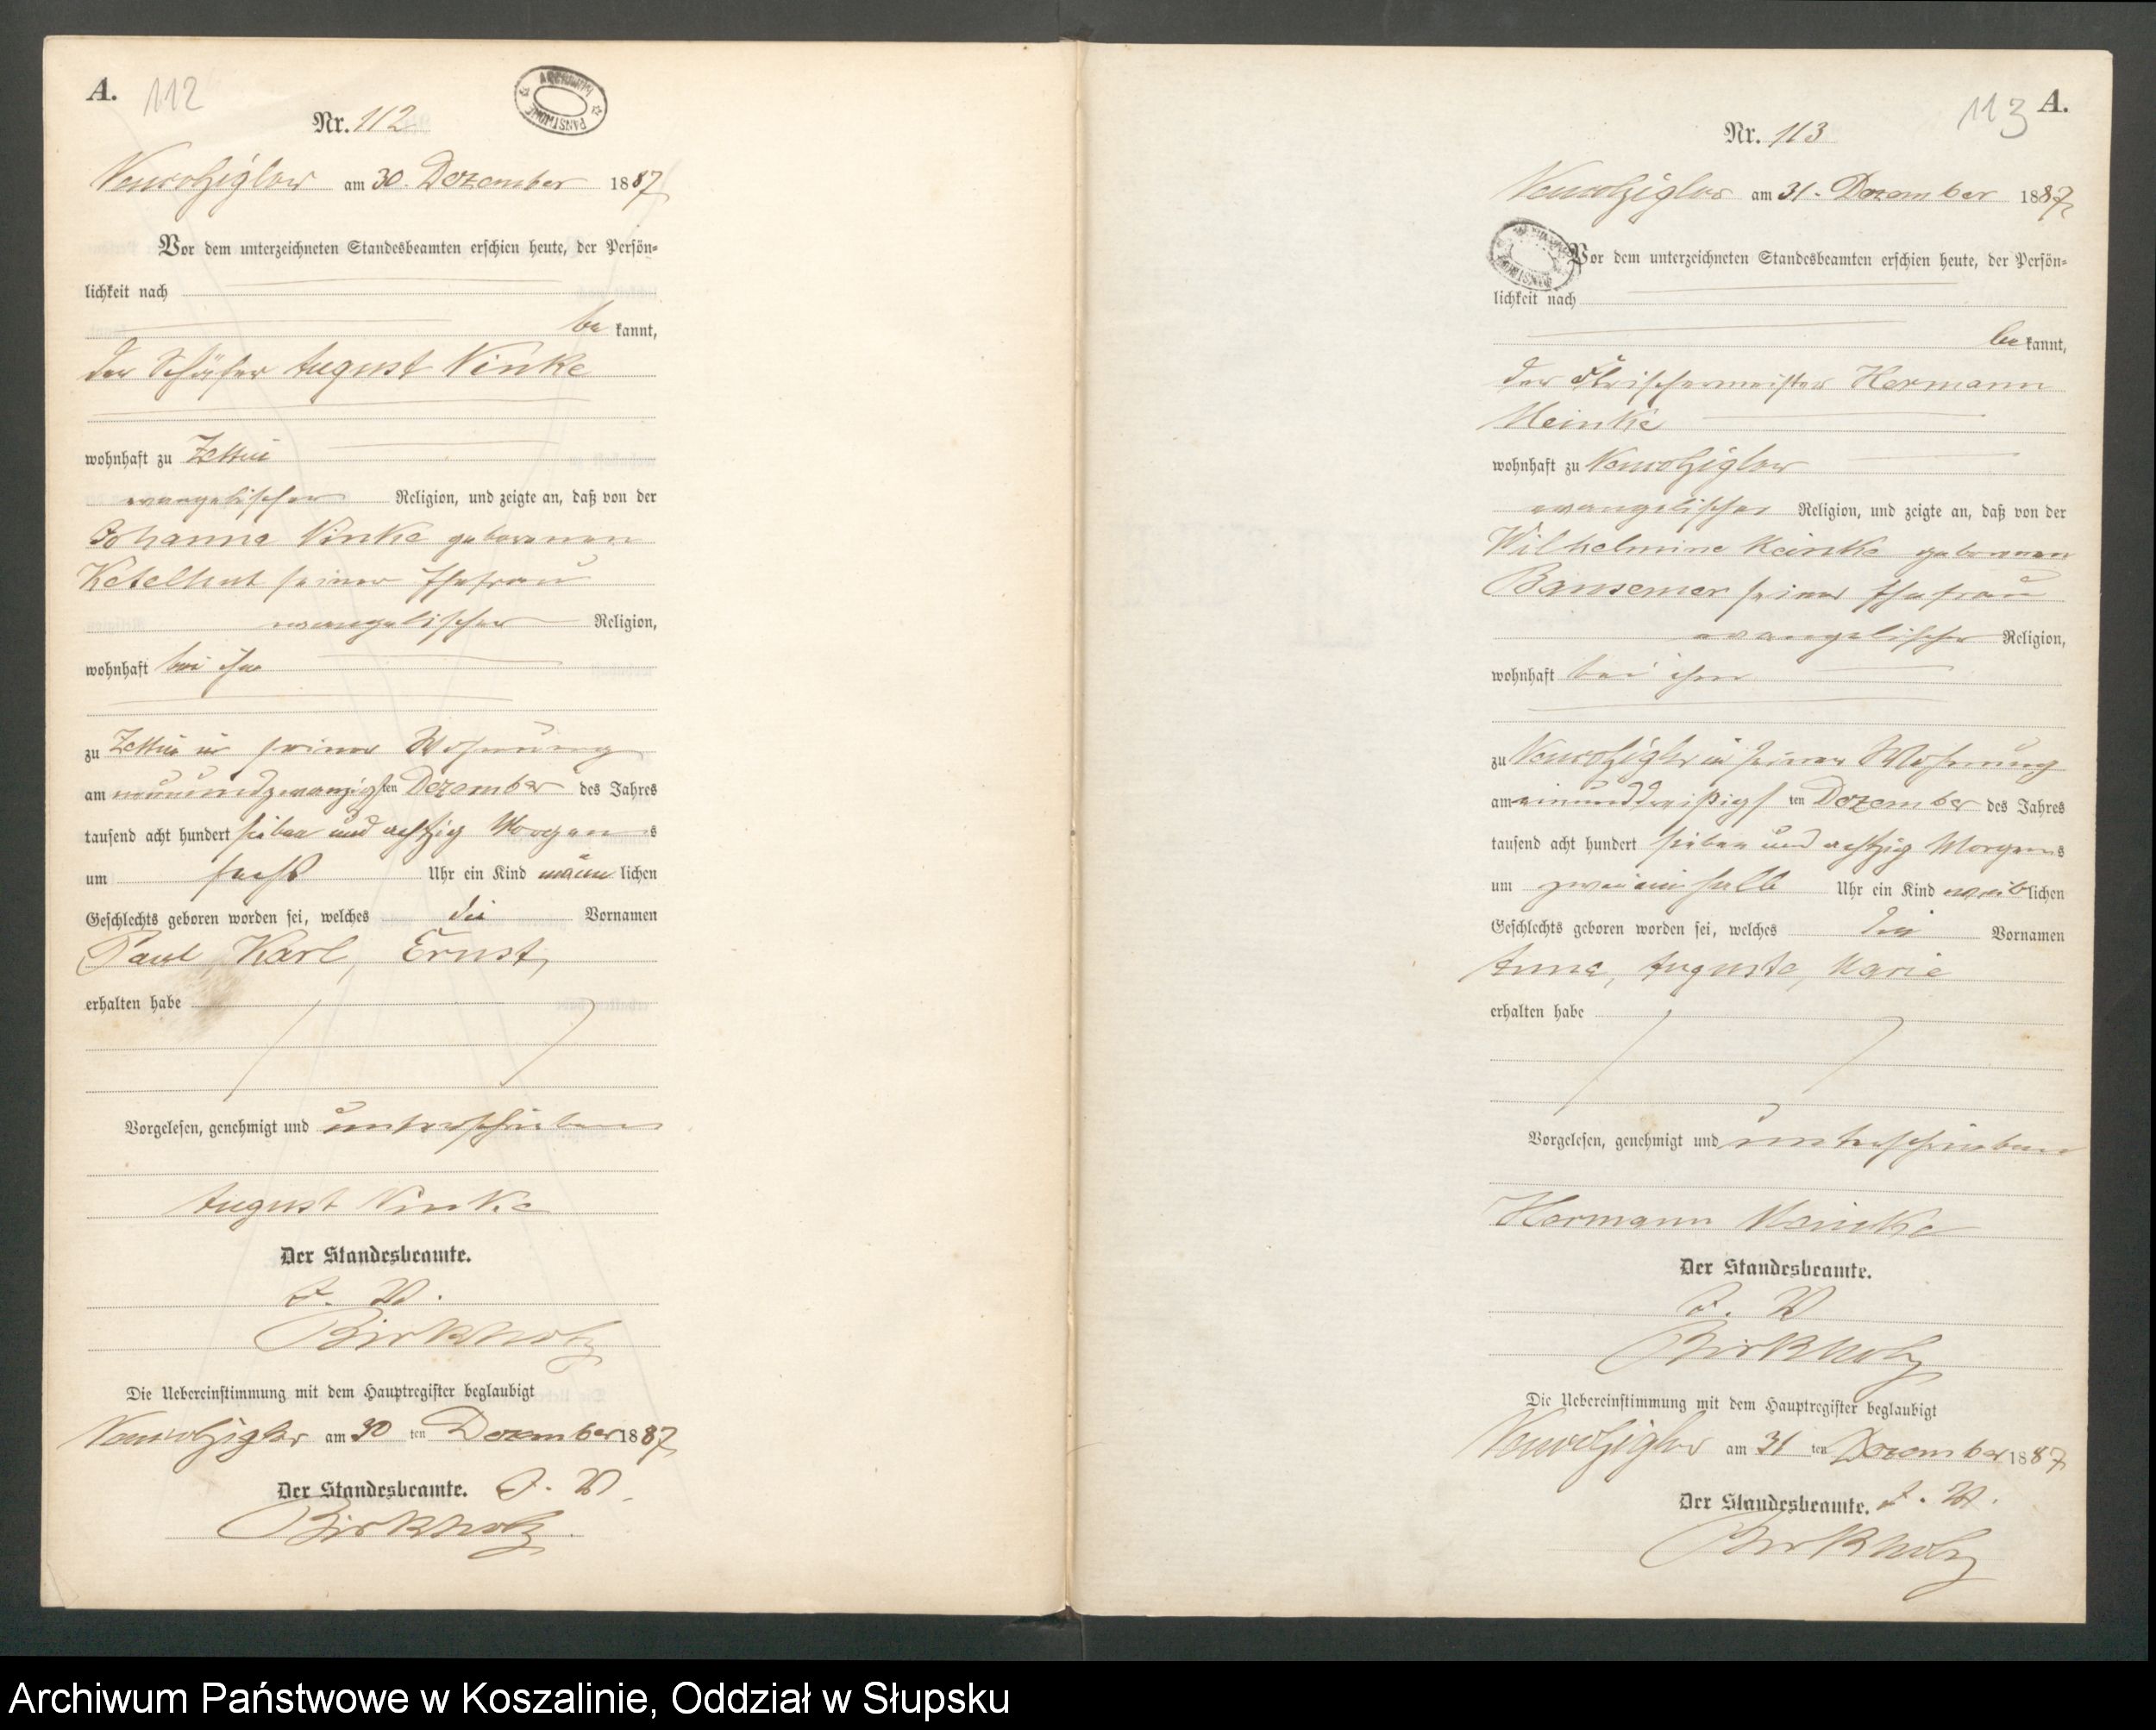 A.
112
Nr. 112
ARCHIWUM PAŃSTWOWE
am 30. Dezember 1887
Vor dem unterzeichneten Standesbeamten erschien heute, der Persön-
lichkeit nach
be kannt,
der Schäfer August Vinke
wohnhaft zu Zettin
evangelischer Religion, und zeigte an, daß von der
Johanna Vinke geborenen
Ketelhut seiner Ehefrau
evangelischer Religion,
wohnhaft bei ihm
zu Zettin in seiner Wohnung
am neunundzwanzigsten Dezember des Jahres
tausend acht hundert sieben und achtzig Morgens
um sechs Uhr ein Kind männlichen
Geschlechts geboren worden sei, welches die Vornamen
Paul, Karl, Ernst,
erhalten habe
Vorgelesen, genehmigt und unterschrieben
August Vinke
Der Standesbeamte.
J. V.
Birkholz
Die Uebereinstimmung mit dem Hauptregister beglaubigt
am 30 ten Dezember 1887
Der Standesbeamte. J. V.
Birkholz.
113 A.
Nr. 113
am 31. Dezember 1887
Vor dem unterzeichneten Standesbeamten erschien heute, der Persön-
lichkeit nach
be kannt,
der Fleischermeister Hermann
Meinke
wohnhaft zu
evangelischer Religion, und zeigte an, daß von der
Wilhelmine Meinke geborenen
Bansemer seiner Ehefrau
evangelischer Religion,
wohnhaft bei ihm
zu in seiner Wohnung
am einunddreißigsten Dezember des Jahres
tausend acht hundert sieben und achtzig Morgens
um zweieinhalb Uhr ein Kind weiblichen
Geschlechts geboren worden sei, welches die Vornamen
Anna, Auguste, Marie
erhalten habe
Vorgelesen, genehmigt und unterschrieben
Hermann Meinke
Der Standesbeamte.
J. V.
Birkholz
Die Uebereinstimmung mit dem Hauptregister beglaubigt
am 31 ten Dezember 1887
Der Standesbeamte. J. V.
Birkholz
Archiwum Państwowe w Koszalinie, Oddział w Słupsku